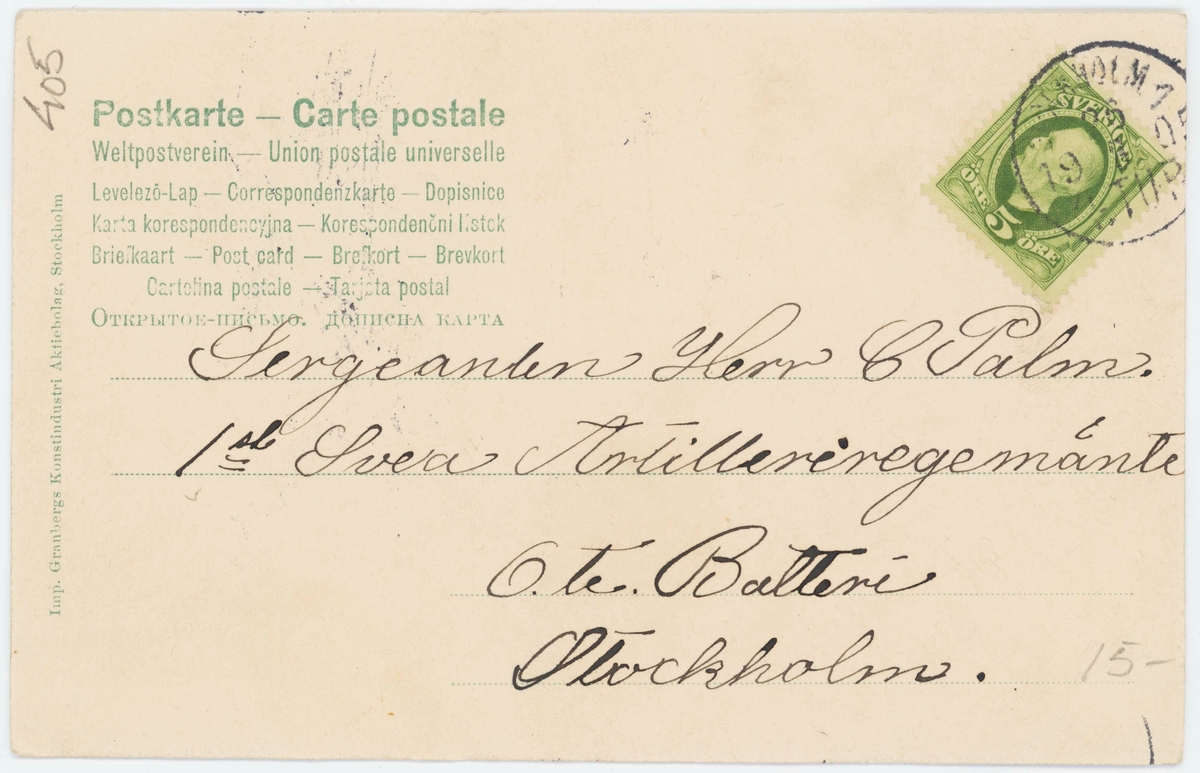 405
Postkarte — Carte postale
Weltpostverein. — Union postale universelle
Levelező-Lap — Correspondenzkarte — Dopisnice
Karta korespondencyjna — Korespondenční lístek
Briefkaart — Post card — Brefkort — Brevkort
Cartolina postale — Tarjeta postal
Открытое-письмо. дописна карта
Imp. Granbergs Konstindustri Aktiebolag, Stockholm
SVERIGE
ÖRE 5 ÖRE
HOLM 1
19
Sergeanten Herr C Palm.
1sta Svea Artilleriregemänte
6.te. Batteri
Stockholm.
15-